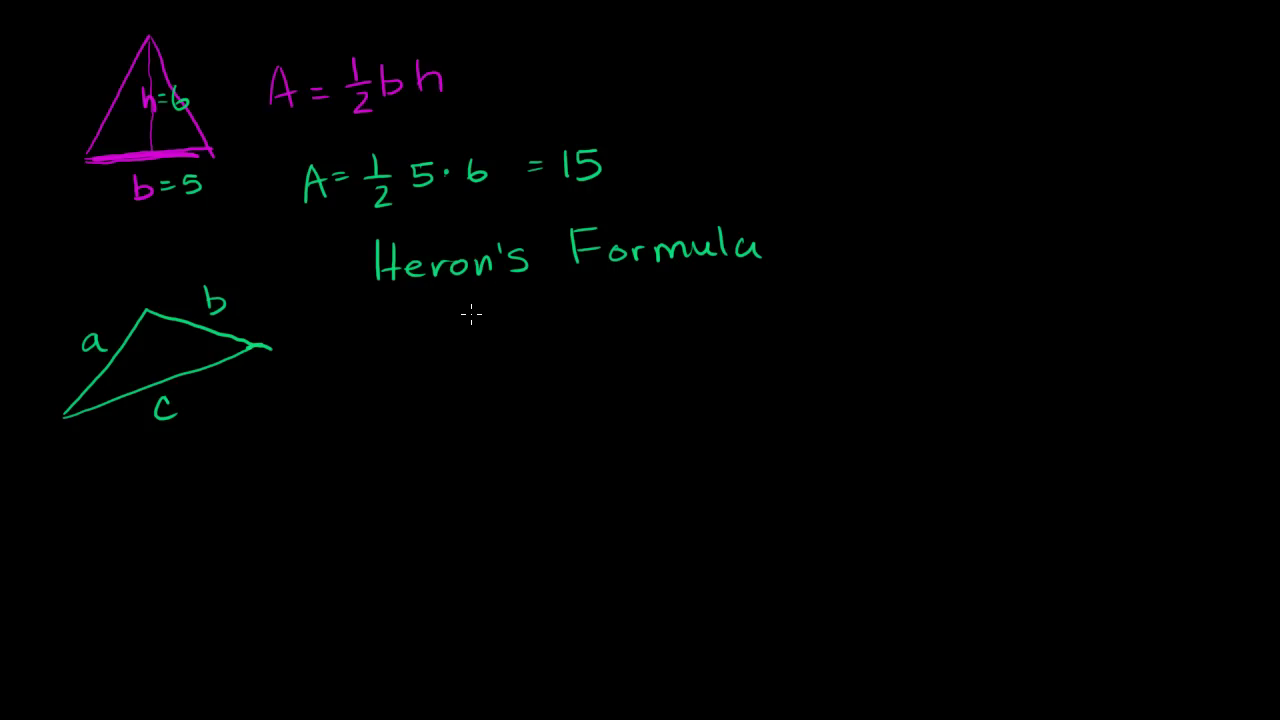 h=6
A = 1/2 b h
b=5
A= 1/2 5·6 = 15
Heron's Formula
b
a
c